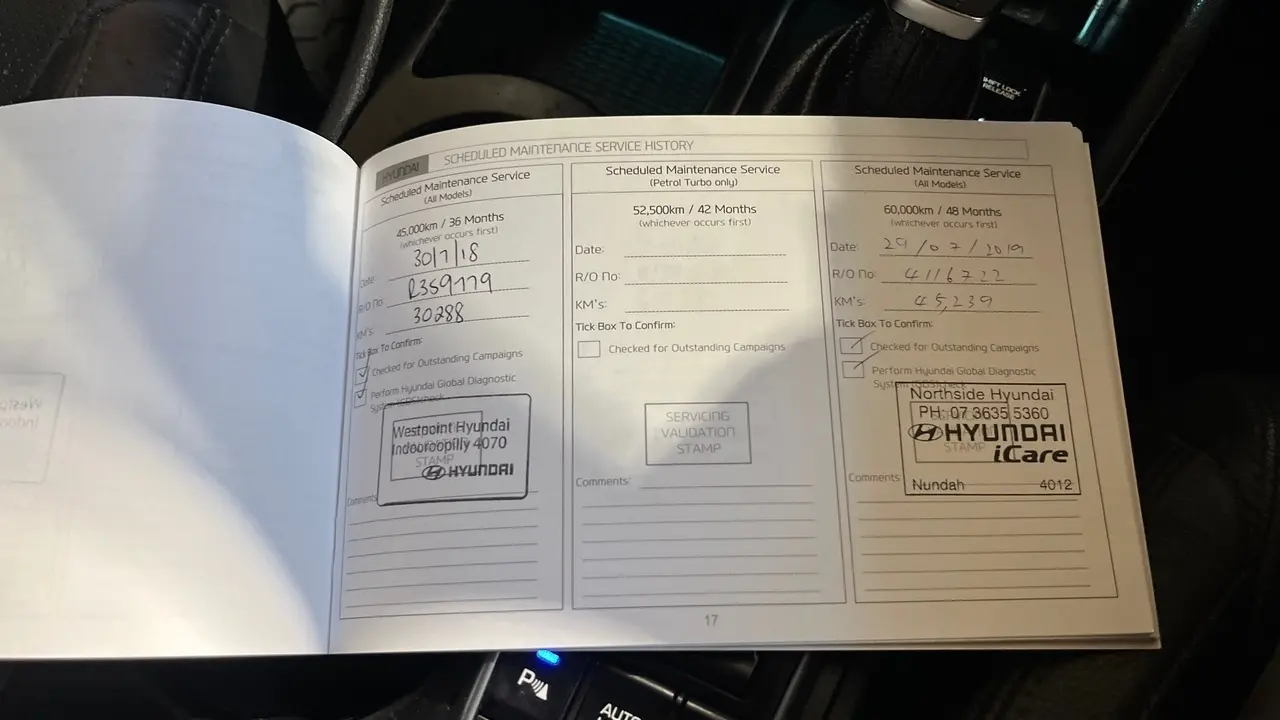 SHIFT LOCK
RELEASE
HYUNDAI
SCHEDULED MAINTENANCE SERVICE HISTORY
Scheduled Maintenance Service
(All Models)
45,000km / 36 Months
(whichever occurs first)
Date: 30/7/18
R/O No: R359779
KM's: 30288
Tick Box To Confirm:
Checked for Outstanding Campaigns
Perform Hyundai Global Diagnostic
System (GDS) check
Westpoint Hyundai
Indooroopilly 4070
STAMP
HYUNDAI
Comments:
Scheduled Maintenance Service
(Petrol Turbo only)
52,500km / 42 Months
(whichever occurs first)
Date:
R/O No:
KM's:
Tick Box To Confirm:
Checked for Outstanding Campaigns
SERVICING
VALIDATION
STAMP
Comments:
Scheduled Maintenance Service
(All Models)
60,000km / 48 Months
(whichever occurs first)
Date: 29/07/2019
R/O No: 4116722
KM's: 45,239
Tick Box To Confirm:
Checked for Outstanding Campaigns
Perform Hyundai Global Diagnostic
System (GDS) check
Northside Hyundai
PH: 07 3635 5360
HYUNDAI
STAMP
iCare
Nundah 4012
Comments:
17
P
AUTO